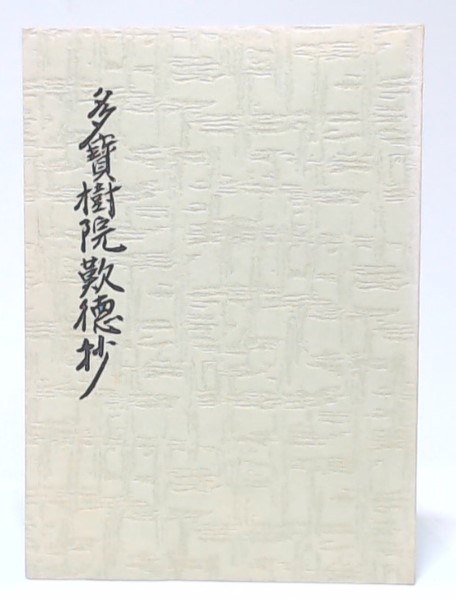 多寶樹院歎德抄